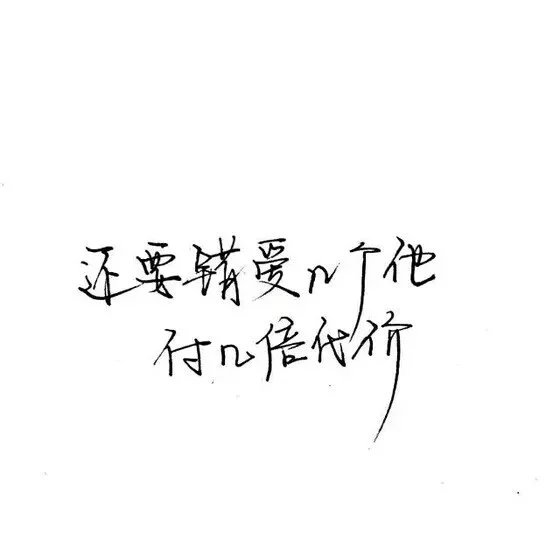 还要错爱几个他
付几倍代价